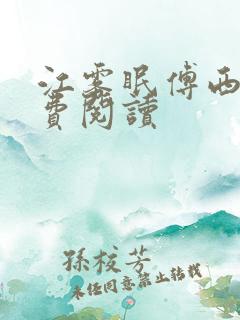 江雾眠傅西
費閱讀
孫校芳
未经同意禁止转载